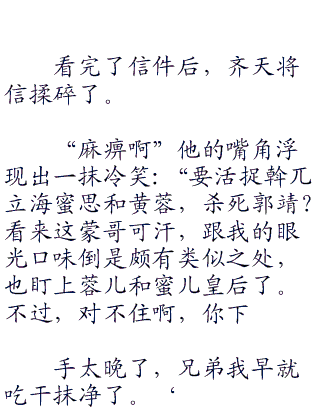 看完了信件后，齐天将
信揉碎了。
“麻痹啊”他的嘴角浮
现出一抹冷笑：“要活捉斡兀
立海蜜思和黄蓉，杀死郭靖？
看来这蒙哥可汗，跟我的眼
光口味倒是颇有类似之处，
也盯上蓉儿和蜜儿皇后了。
不过，对不住啊，你下
手太晚了，兄弟我早就
吃干抹净了。‘